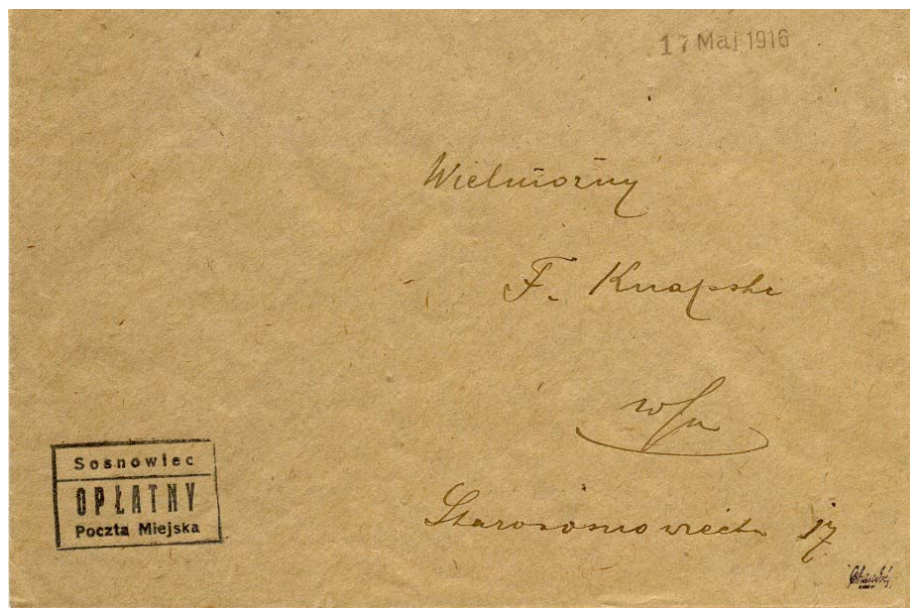 17 Mai 1916
Wielmożny
F. Knapski
w/m
Starososnowiecka 17
Sosnowiec
OPŁATNY
Poczta Miejska